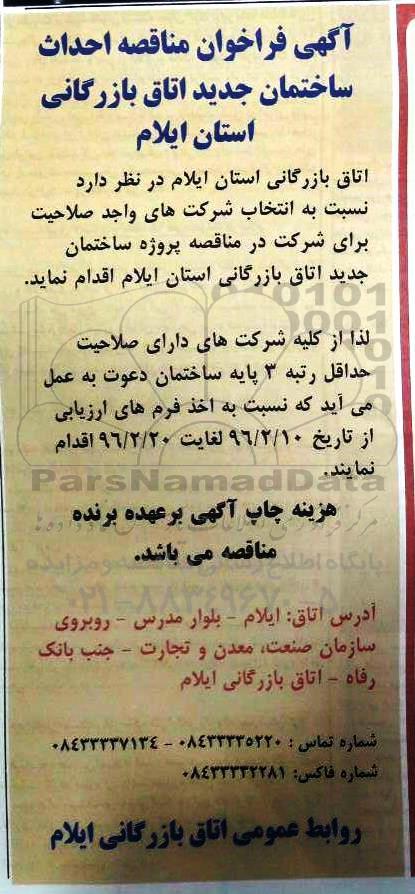 آگهی فراخوان مناقصه احداث
ساختمان جدید اتاق بازرگانی
استان ایلام
اتاق بازرگانی استان ایلام در نظر دارد
نسبت به انتخاب شرکت های واجد صلاحیت
برای شرکت در مناقصه پروژه ساختمان
جدید اتاق بازرگانی استان ایلام اقدام نماید.
لذا از کلیه شرکت های دارای صلاحیت
حداقل رتبه ۳ پایه ساختمان دعوت به عمل
می آید که نسبت به اخذ فرم های ارزیابی
از تاریخ ۹۶/۲/۱۰ لغایت ۹۶/۲/۲۰ اقدام
نمایند.
ParsNamadData
هزینه چاپ آگهی برعهده برنده
مناقصه می باشد.
پایگاه اطلاع رسانی مناقصه و مزایده
۰۲۱-۸۸۳۴۹۶۷۰-۵
آدرس اتاق: ایلام - بلوار مدرس - روبروی
سازمان صنعت، معدن و تجارت - جنب بانک
رفاه - اتاق بازرگانی ایلام
شماره تماس : ۰۸۴۳۳۳۳۵۲۲۰ - ۰۸۴۳۳۳۳۷۱۳۴
شماره فاکس: ۰۸۴۳۳۳۳۲۲۸۱
روابط عمومی اتاق بازرگانی ایلام